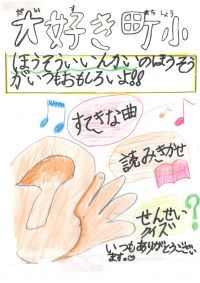 だいすまちしょう
大好き町小
ほうそういいんかいのほうそう
がいつもおもしろいよ!!
すてきな曲
読みきかせ
?
せんせい
クイズ
いつもありがとうござい
ます。